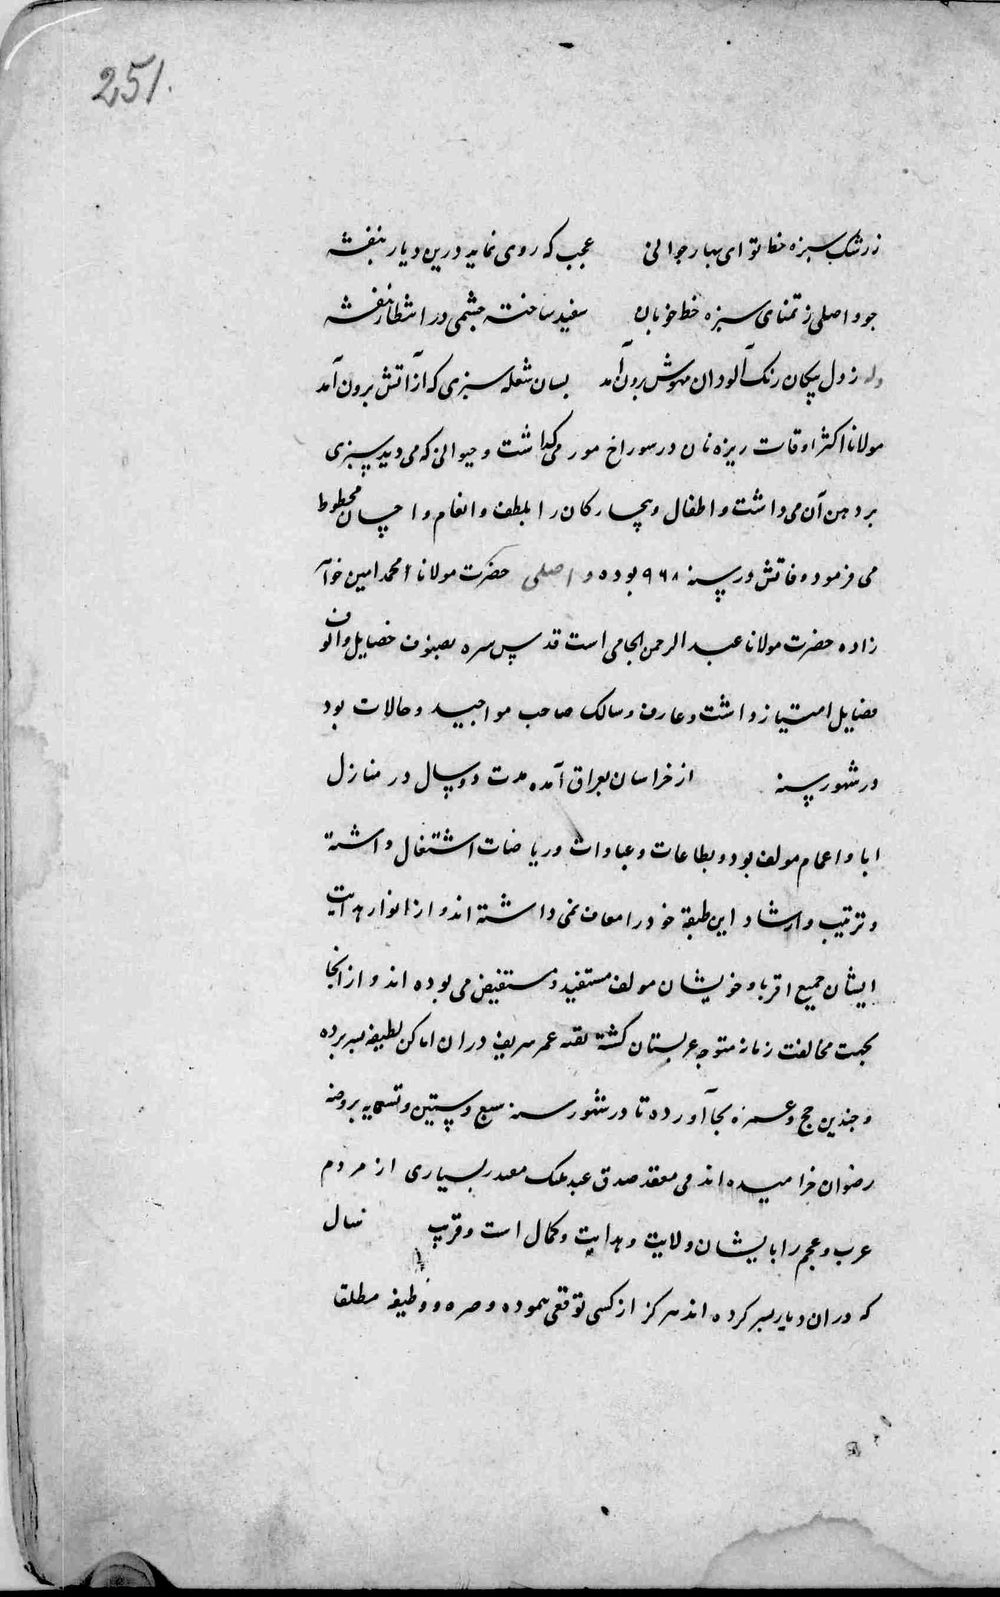 251.
ز رشک سبزه خط تو ای بهار جوانی عجب که روی نماید درین دیار بنفشه
چو واصلی ز تمنای سبزه خط خوبان سفید ساخته چشمی در انتظار بنفشه
وله ز دل پیکان رنک آلود ان مهوش برون آمد بسان شعله سبزی که از آتش برون آمد
مولانا اکثر اوقات ریزه نان در سوراخ مور می کذاشت و حیوانی که می دید سبزی
بر دهن آن می داشت و اطفال و بیچارکان را بلطف و انعام و احسان محظوظ
می فرمود وفاتش در سنه ۹۶۸ بوده واصلی حضرت مولانا محمد امین خواهر
زاده حضرت مولانا عبد الرحمن الجامی است قدس سره بصنوف خصایل والوف
فضایل امتیاز داشت و عارف و سالک صاحب مواجید و حالات بود
در شهور سنه از خراسان بعراق آمده مدت دو سال در منازل
ابا و اعمام مولف بود و بطاعات و عبادات و ریاضات اشتغال داشته
و ترتیب و ارشاد این طبقه خود را معاف نمی داشته اند و از انوار هدایت
ایشان جمیع اقربا و خویشان مولف مستفید و مستفیض می بوده اند و از انجا
بجهت مخالفت زمانه متوجه عربستان کشته بقیه عمر شریف در ان اماکن لطیفه بسر برده
و چندین حج و عمره بجا آورده تا در شهور سنه سبع و ستین و تسعمایه بروضه
رضوان خرامیده اند می معقد صدق عند ملیک مقتدر بسیاری از مردم
عرب و عجم را بایشان ولایت و هدایت و کمال است و قریب سال
که در ان دیار بسر کرده اند هرکز از کسی توقعی ننموده و صره و وظیفه مطلقا